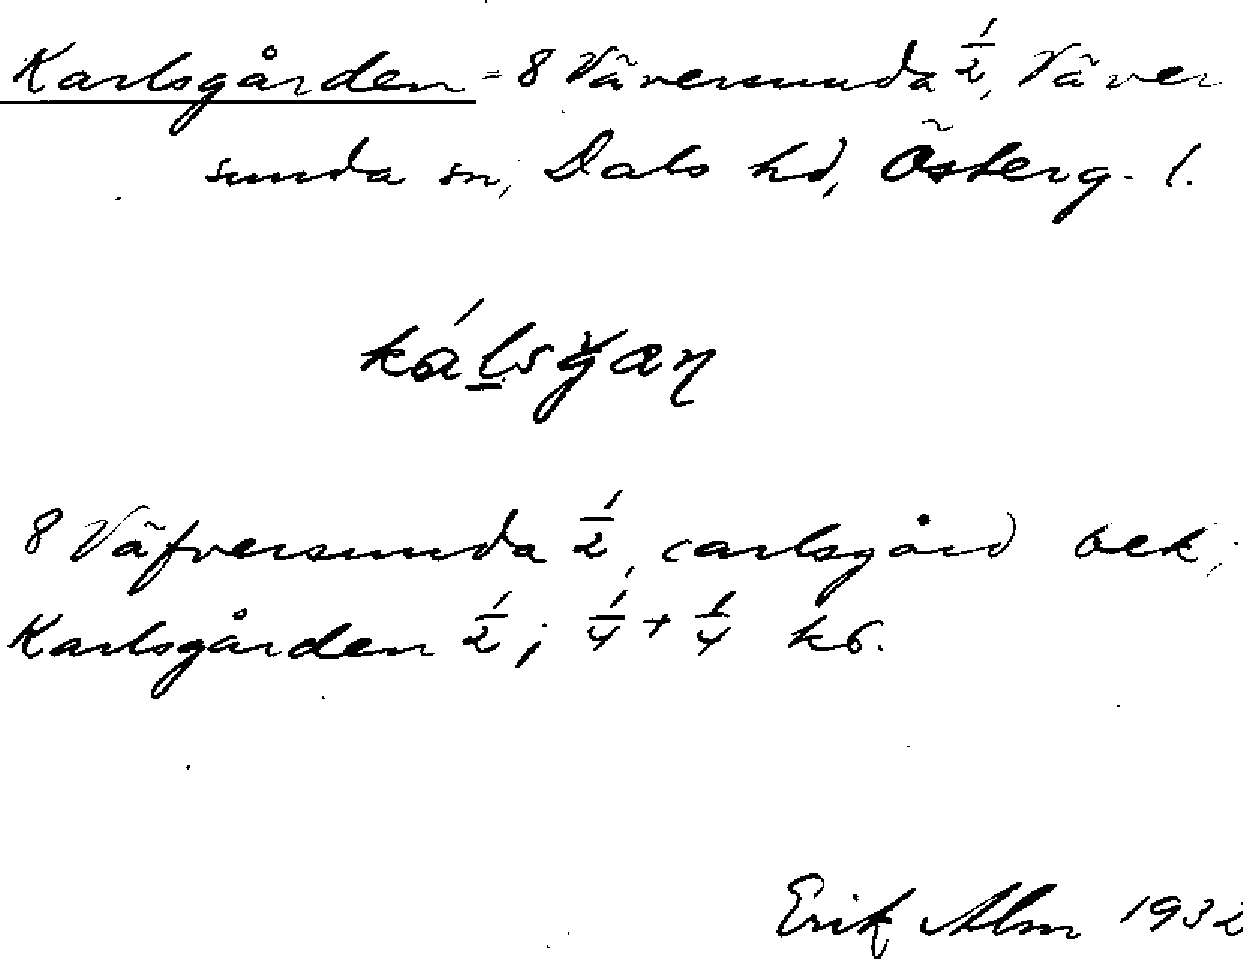 Karlsgården = 8 Väversunda 1/2, Väver
sunda sn, Dals hd, Österg. l.
8 Väfversunda 1/2, Carlsgård bek;
Karlsgården 1/2; 1/4 + 1/4 kb.
Erik Alm 1932